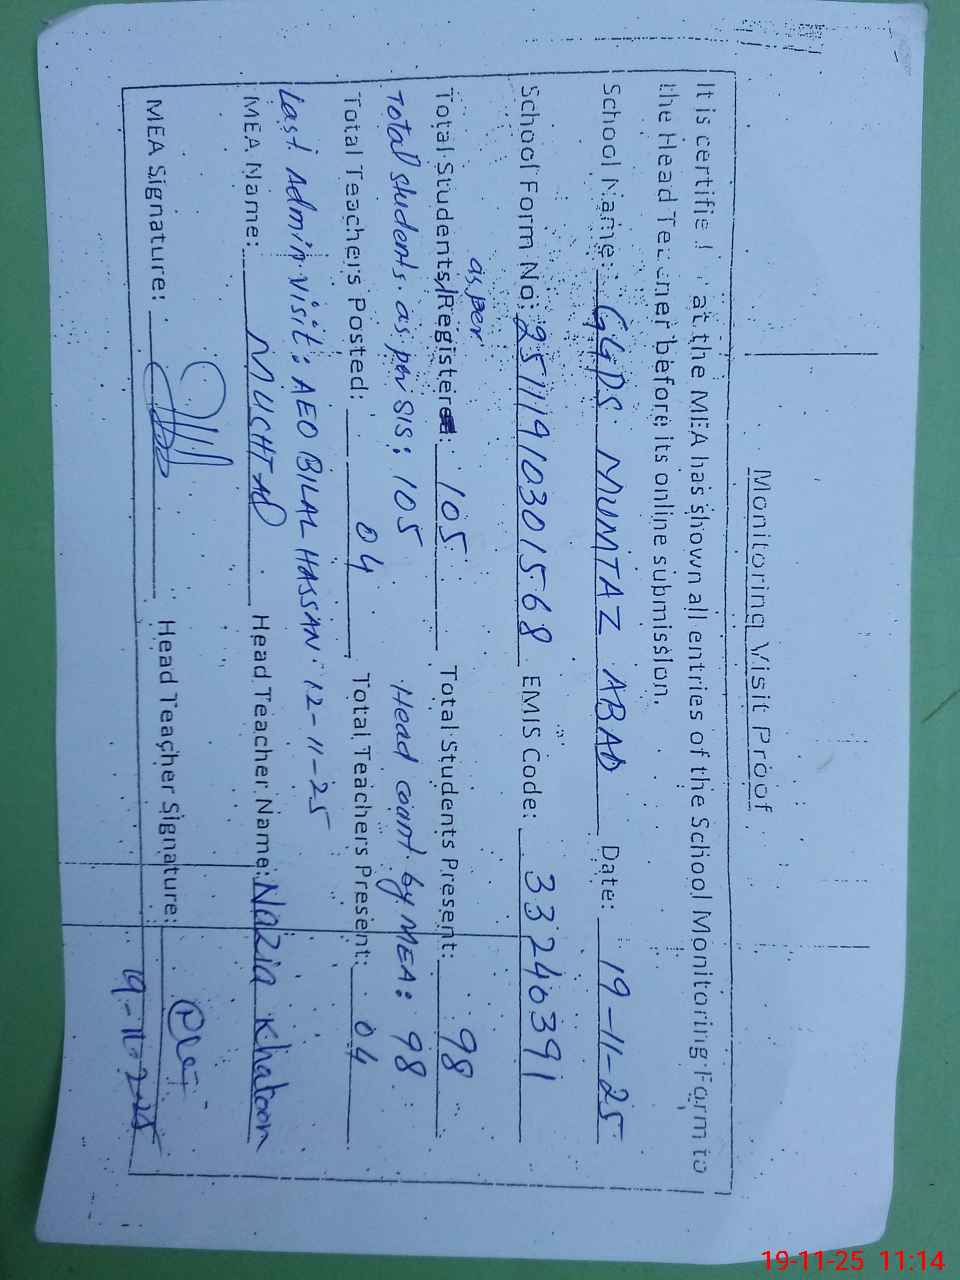 Monitoring Visit Proof
It is certified at the MEA has shown all entries of the School Monitoring Form to
the Head Teacher before its online submission.
School Name: GGPS MUMTAZ ABAD Date: 19-11-25
School Form No: 25111910301568 EMIS Code: 33240391
as per
Total Students Register: 105 Total Students Present: 98
Total students as per SIS: 105 Head count by MEA: 98
Total Teachers Posted: 04 Total Teachers Present: 04
Last Admin visit: AEO BILAL HASSAN 12-11-25
MEA Name: MUSHTAQ Head Teacher Name: Nazia Khatoon
MEA Signature: Head Teacher Signature:
19-11-2025
19-11-25 11:14